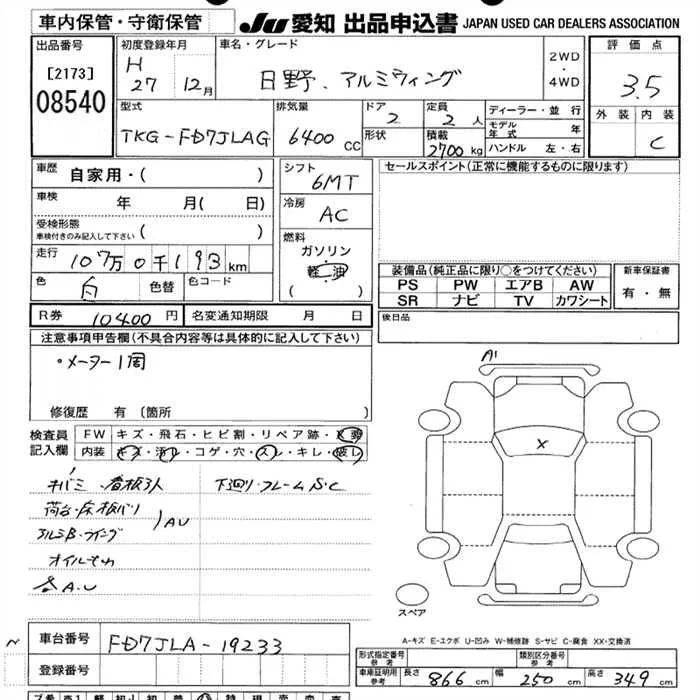 車内保管・守衛保管 JU 愛知 出品申込書 JAPAN USED CAR DEALERS ASSOCIATION
出品番号
[2173]
08540
初度登録年月
H 27 12月
車名・グレード
日野.アルミウィング
2WD
・
4WD
評価点
3.5
外装 内装
C
型式
TKG-FD7JLAG
排気量
6400 CC
ドア
2
形状
定員
2 人
積載
2700 kg
ディーラー・並行
モデル年式 年
ハンドル 左・右
車歴 自家用・( )
車検 年 月( 日)
受検形態
車検付きのみ記入して下さい ( )
走行 107万0千193km
色 白 色替 色コード
シフト
6MT
冷房
AC
燃料
ガソリン
軽油
( )
セールスポイント(正常に機能するものに限ります)
装備品(純正品に限り○をつけてください)
PS PW エアB AW
SR ナビ TV カワシート
新車保証書
有・無
R券 10400 円 名変通知期限 月 日
後日品
注意事項申告欄(不具合内容等は具体的に記入して下さい)
・メーター1周
修復歴 有 [箇所 ]
検査員
記入欄
FW キズ・飛石・ヒビ割・リペア跡・X要
内装 キズ・汚レ・コゲ・穴・スレ・キレ・破レ
キバミ 看板3人 下回り・フレームS・C
荷台・床板バリ
アルミB・ウイング
AU
オイルもれ
各A.U
A1
X
スペア
A-キズ E-エクボ U-凹み W-補修跡 S-サビ C-腐食 XX-交換済
車台番号 FD7JLA-19233
登録番号
形式指定番号
参考
類別区分番号
参考
車庫証明用
参考
長さ 866 cm 幅 250 cm 高さ 349 cm